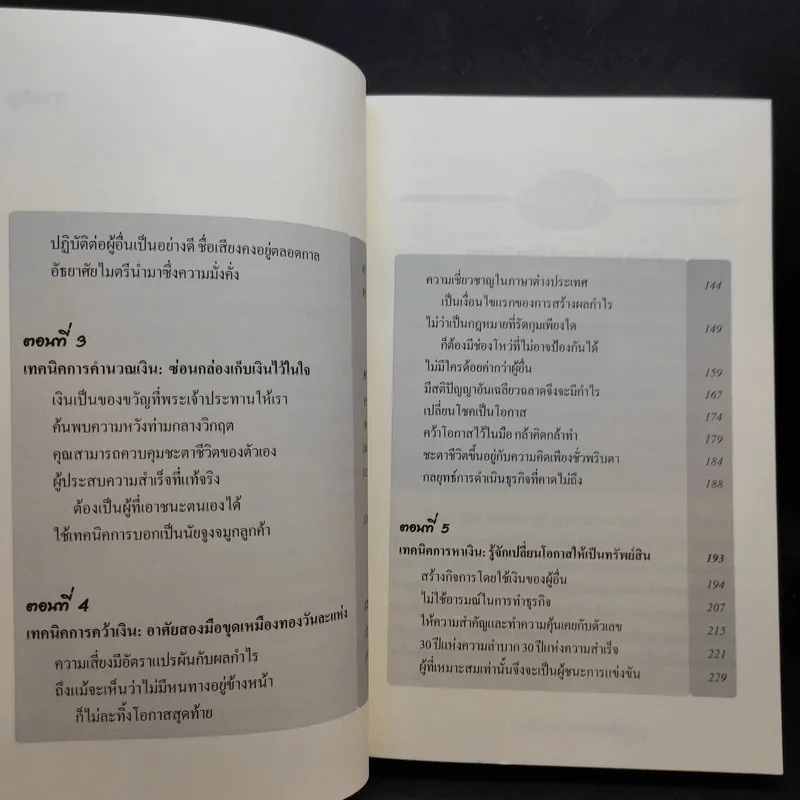 ปฏิบัติต่อผู้อื่นเป็นอย่างดี ชื่อเสียงคงอยู่ตลอดกาล
อัธยาศัยไมตรีนำมาซึ่งความมั่งคั่ง
ตอนที่ 3
เทคนิคการคำนวณเงิน: ซ่อนกล่องเก็บเงินไว้ในใจ
เงินเป็นของขวัญที่พระเจ้าประทานให้เรา
ค้นพบความหวังท่ามกลางวิกฤต
คุณสามารถควบคุมชะตาชีวิตของตัวเอง
ผู้ประสบความสำเร็จที่แท้จริง
ต้องเป็นผู้ที่เอาชนะตนเองได้
ใช้เทคนิคการบอกเป็นนัยจูงจมูกลูกค้า
ตอนที่ 4
เทคนิคการคว้าเงิน: อาศัยสองมือขุดเหมืองทองวันละแห่ง
ความเสี่ยงมีอัตราแปรผันกับผลกำไร
ถึงแม้จะเห็นว่าไม่มีหนทางอยู่ข้างหน้า
ก็ไม่ละทิ้งโอกาสสุดท้าย
ความเชี่ยวชาญในภาษาต่างประเทศ 144
เป็นเงื่อนไขแรกของการสร้างผลกำไร
ไม่ว่าเป็นกฎหมายที่รัดกุมเพียงใด 149
ก็ต้องมีช่องโหว่ที่ไม่อาจป้องกันได้
ไม่มีใครด้อยค่ากว่าผู้อื่น 159
มีสติปัญญาอันเฉลียวฉลาดจึงจะมีกำไร 167
เปลี่ยนโชคเป็นโอกาส 174
คว้าโอกาสไว้ในมือ กล้าคิดกล้าทำ 179
ชะตาชีวิตขึ้นอยู่กับความคิดเพียงชั่วพริบตา 184
กลยุทธ์การดำเนินธุรกิจที่คาดไม่ถึง 188
ตอนที่ 5
เทคนิคการหาเงิน: รู้จักเปลี่ยนโอกาสให้เป็นทรัพย์สิน 193
สร้างกิจการโดยใช้เงินของผู้อื่น 194
ไม่ใช้อารมณ์ในการทำธุรกิจ 207
ให้ความสำคัญและทำความคุ้นเคยกับตัวเลข 215
30 ปีแห่งความลำบาก 30 ปีแห่งความสำเร็จ 221
ผู้ที่เหมาะสมเท่านั้นจึงจะเป็นผู้ชนะการแข่งขัน 229